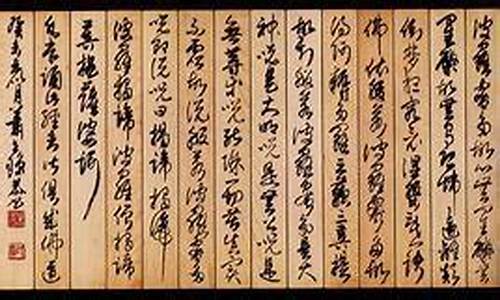 波羅蜜多故心無罣礙無
罣礙故無有恐怖遠離顛
倒夢想究竟涅槃三世諸
佛依般若波羅蜜多故
得阿耨多羅三藐三菩提
故知般若波羅蜜多是大
神咒是大明咒是無上咒是
無等等咒能除一切苦真實
不虛故說般若波羅蜜多
咒即說咒曰揭諦揭諦
波羅揭諦波羅僧揭諦
菩提薩婆訶
誦此經者皆俱成佛道
癸未月